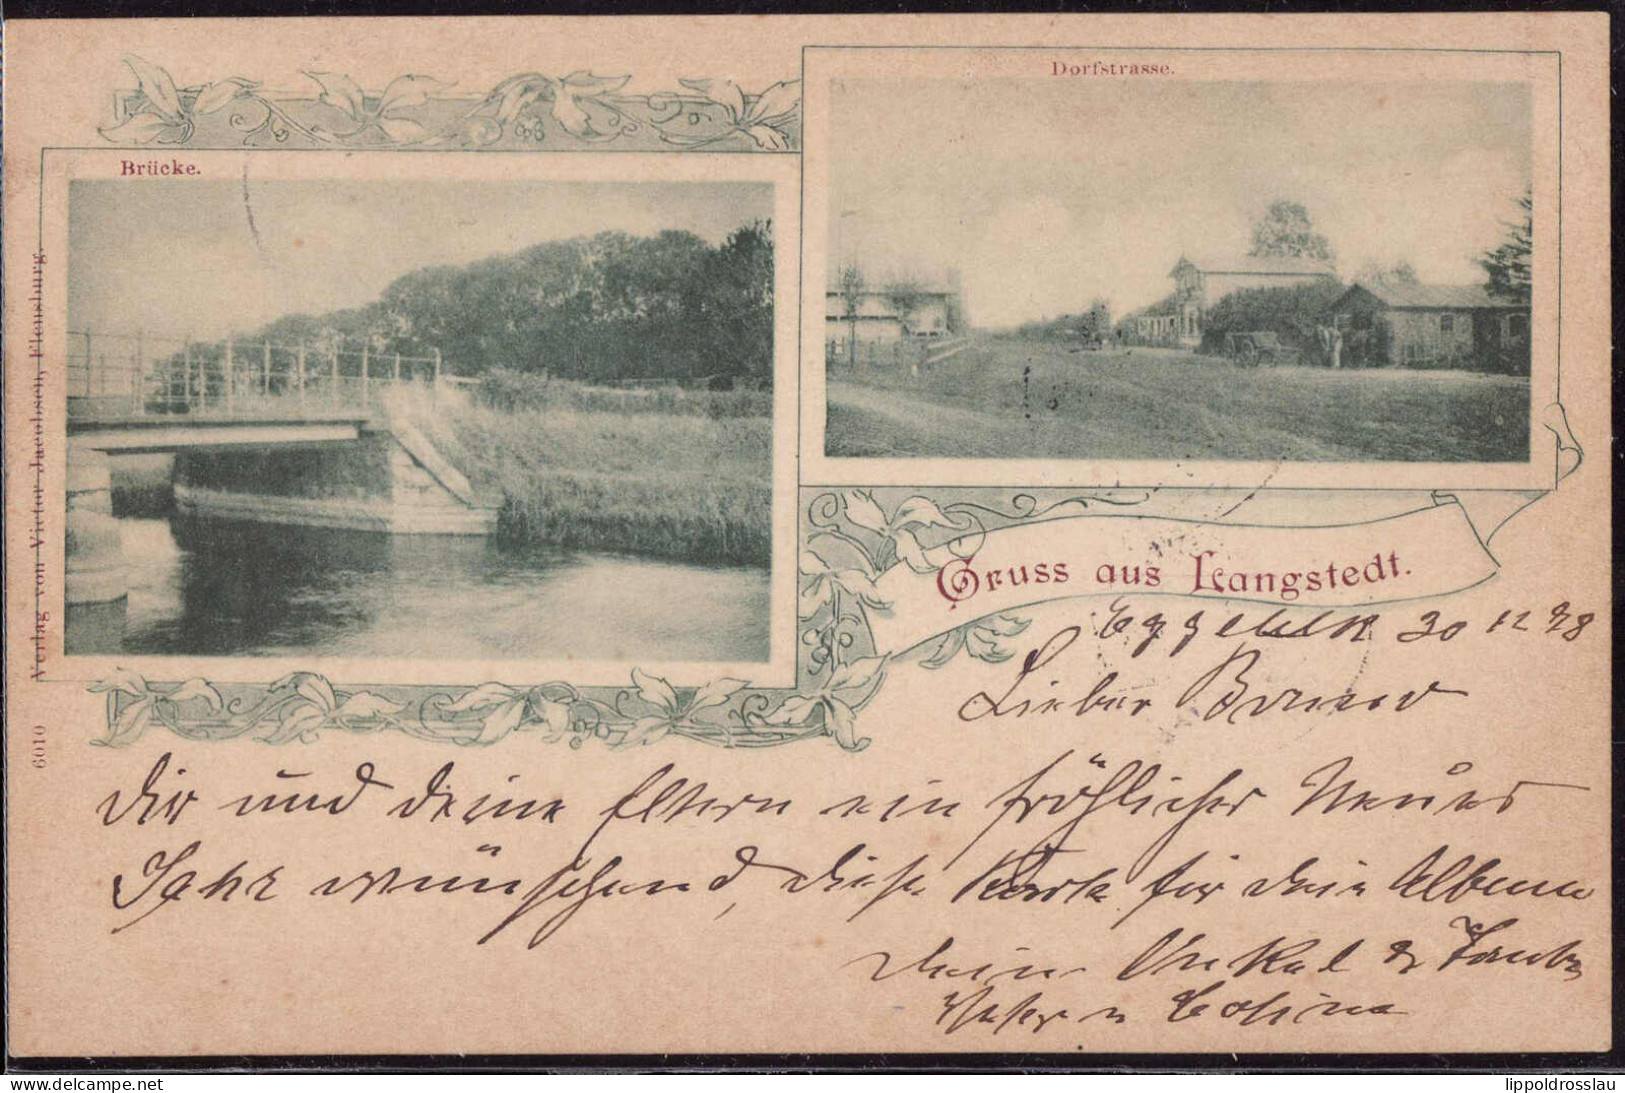 Dorfstrasse.
Brücke.
Gruss aus Langstedt.
Verlag von Victor Jacobsen, Flensburg.
6010
Eggebek 30 12 98
Lieber Bruno
Dir und deine Eltern ein fröhliches Neues
Jahr wünschend, diese Karte für dein Album
Dein Onkel & Tante
delcampe.net
lippoldrosslau